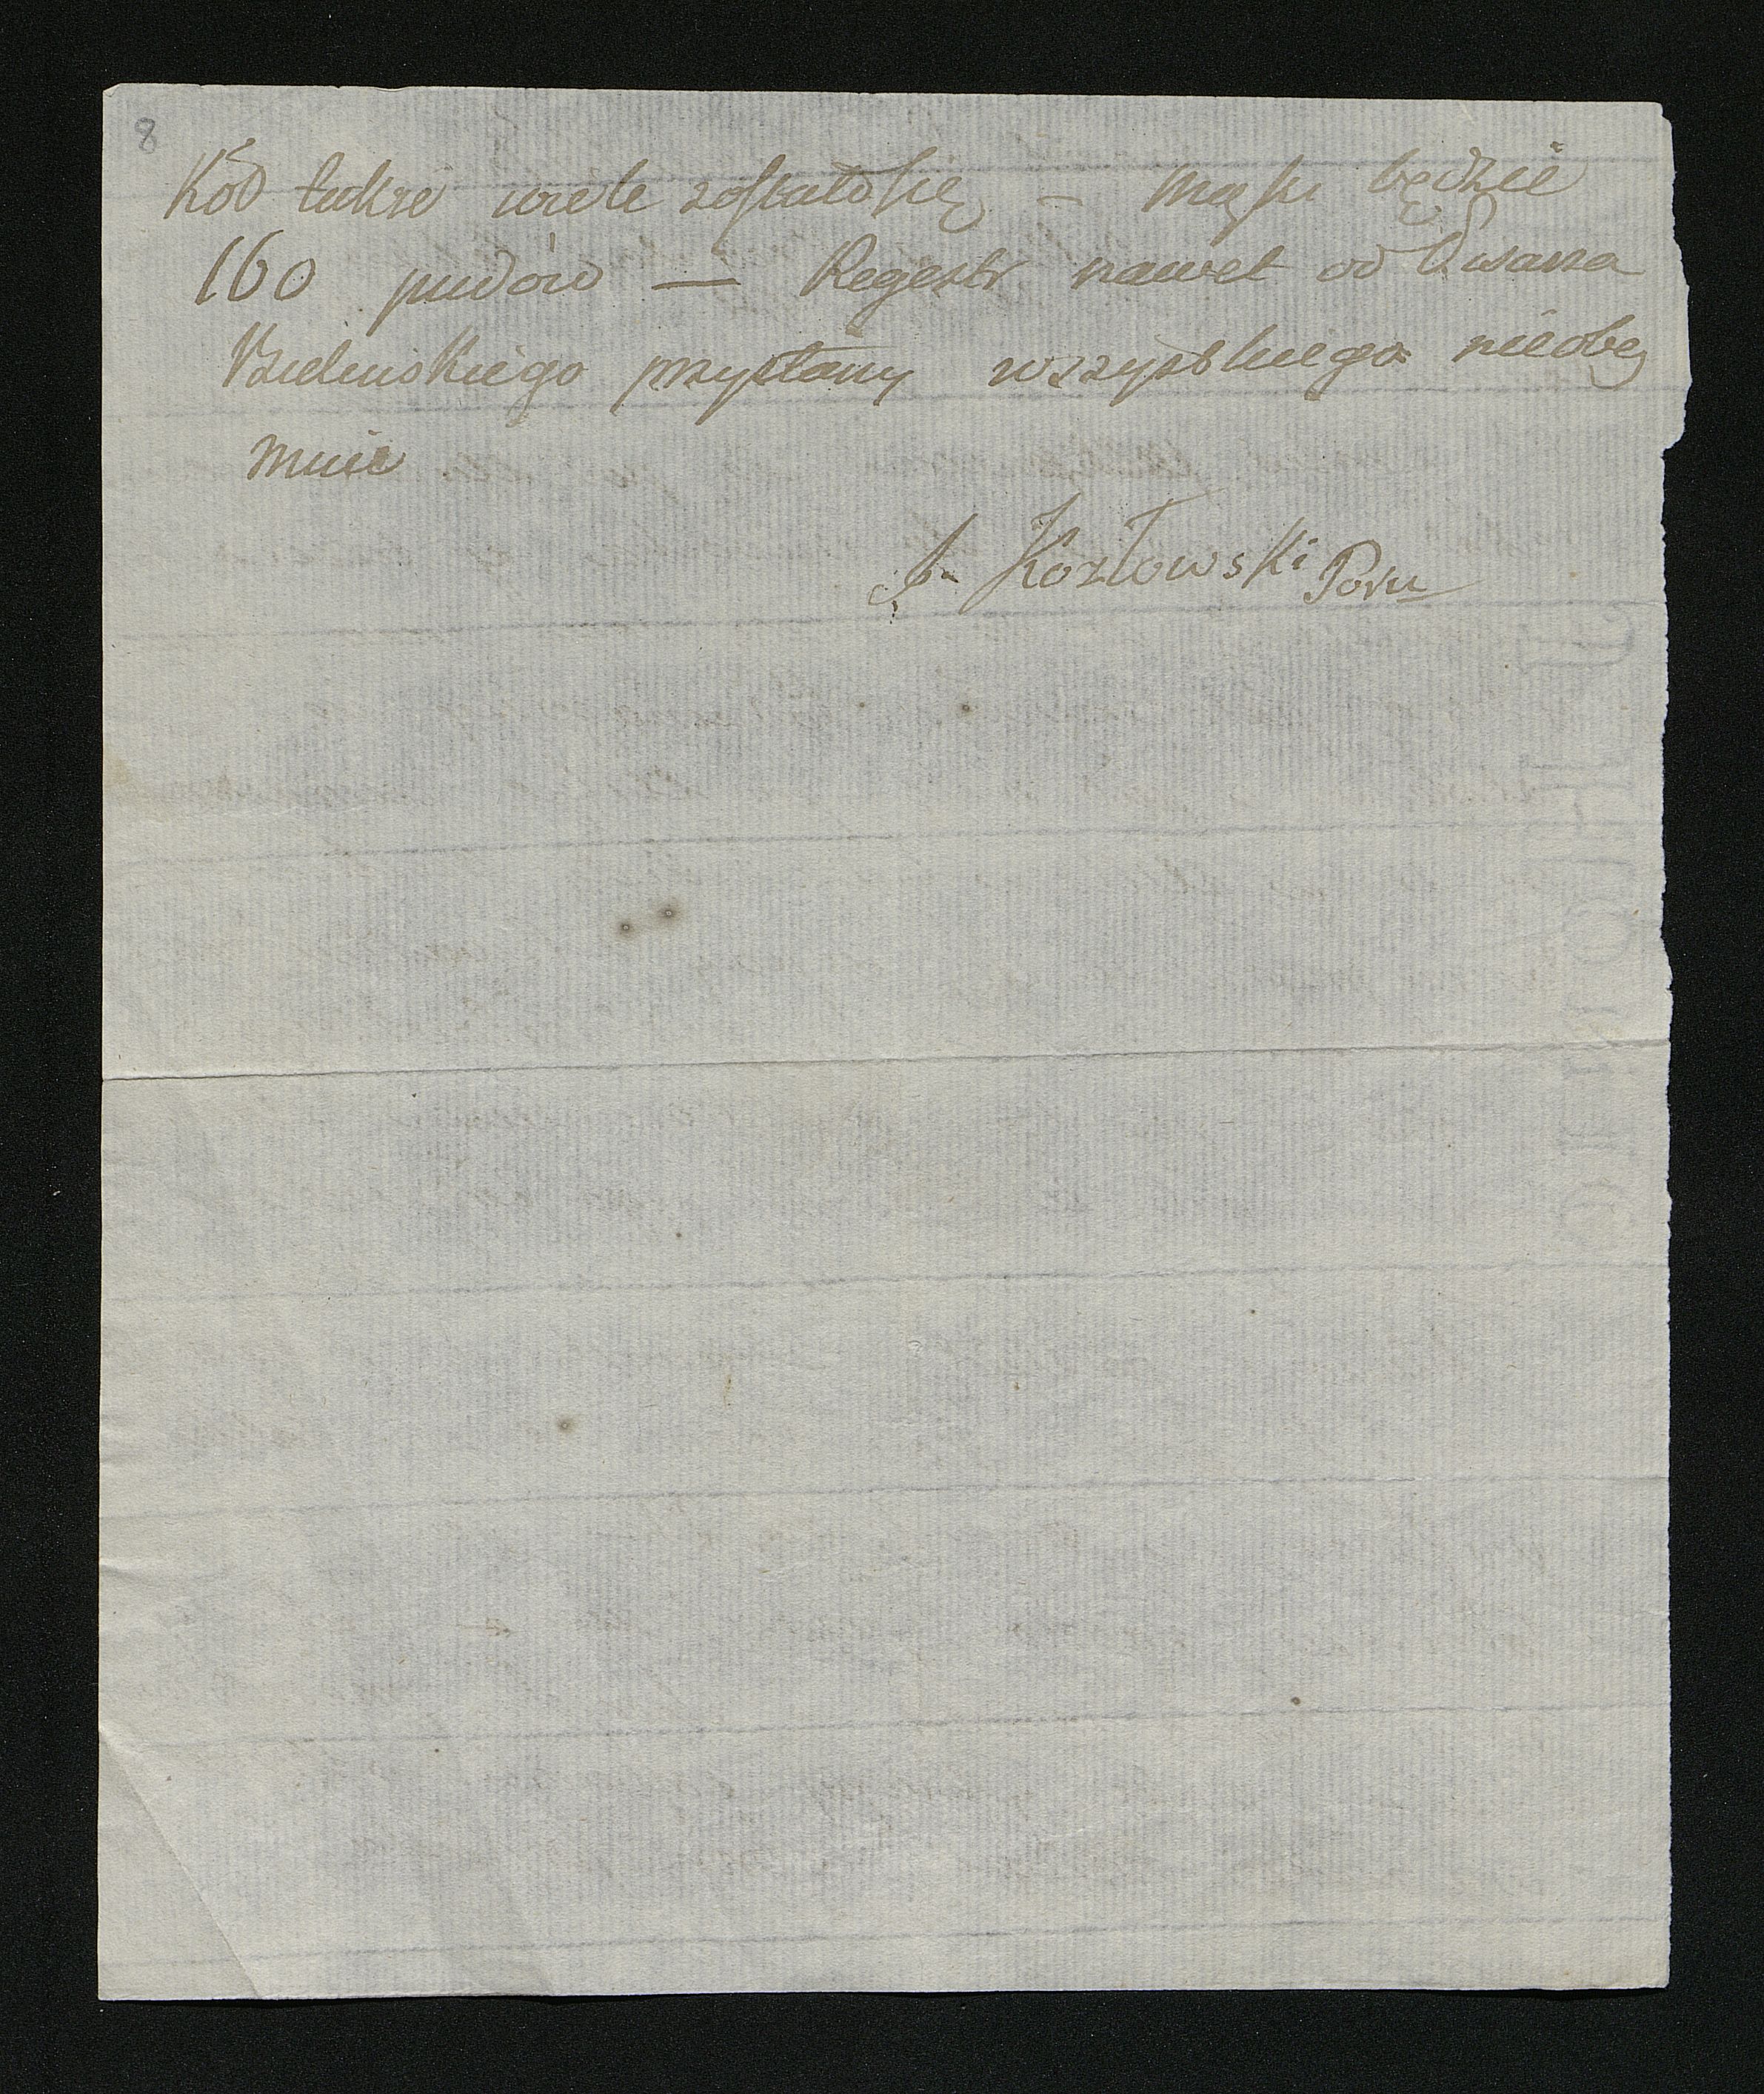 8
Kod także wiele zostało się – mąki będzie
160 pudów — Regestr nawet od Dwana
Bielinskiego przysłany wszystkiego nieobej
muie
A. Kozłowski Poru